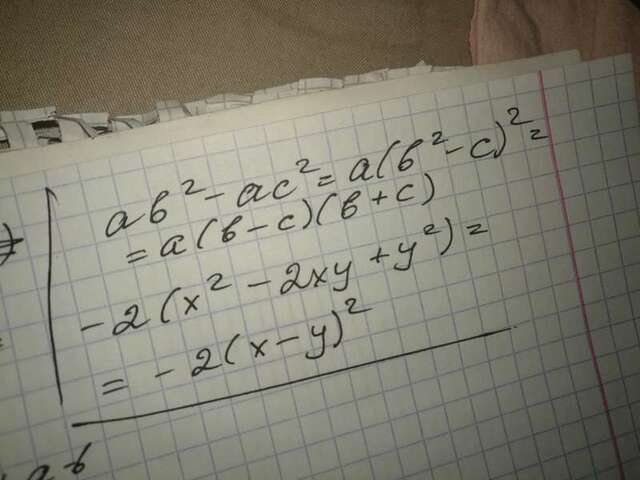 ab² - ac² = a(b² - c)² =
= a(b - c)(b + c)
- 2(x² - 2xy + y²) =
= - 2(x - y)²